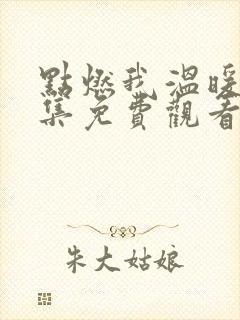 點燃我溫暖
集免費觀看
朱大姑娘